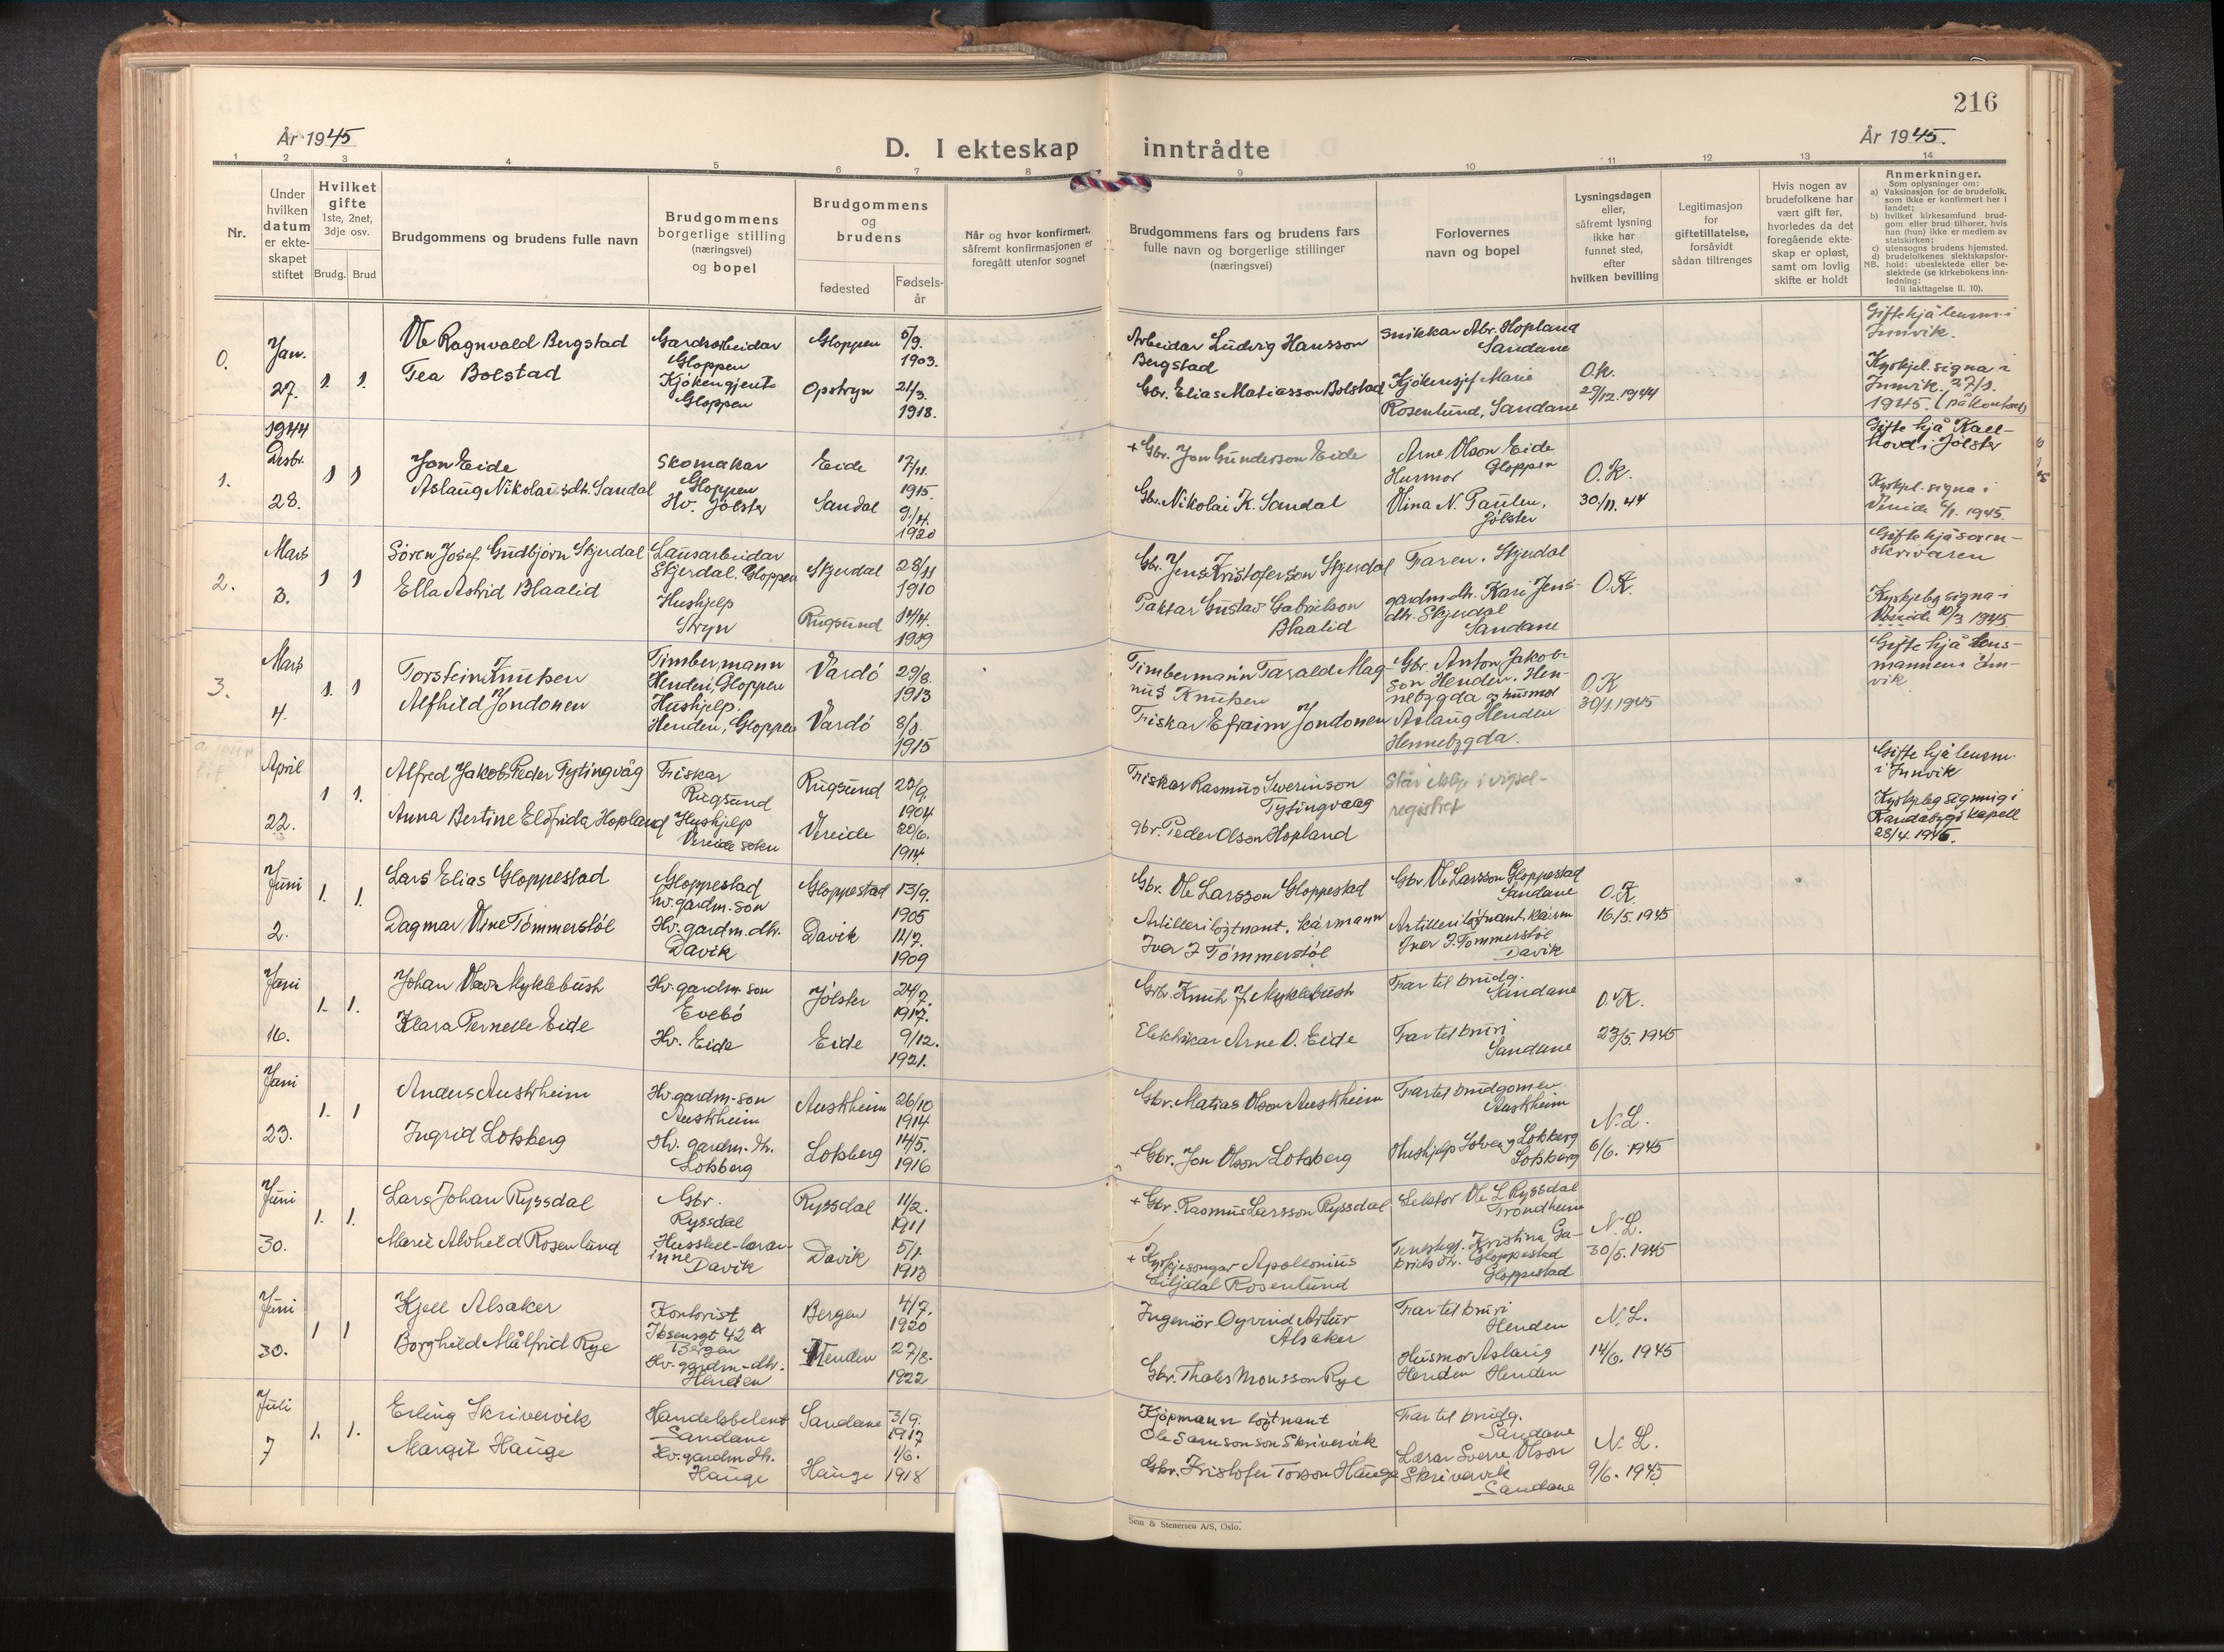 216
År 1945
År 1945.
D. I ekteskap inntrådte
1 2 3 4 5 6 7 8 9 10 11 12 13 14
Nr.
Under hvilken datum er ekte-skapet stiftet
Hvilket gifte 1ste, 2net, 3dje osv.
Brudg. Brud
Brudgommens og brudens fulle navn
Brudgommens borgerlige stilling (næringsvei) og bopel
Brudgommens og brudens
fødested
Fødsels-år
Når og hvor konfirmert, såfremt konfirmasjonen er foregått utenfor sognet
Brudgommens fars og brudens fars fulle navn og borgerlige stillinger (næringsvei)
Forlovernes navn og bopel
Lysningsdagen eller, såfremt lysning ikke har funnet sted, efter hvilken bevilling
Legitimasjon for giftetillatelse, forsåvidt sådan tiltrenges
Hvis nogen av brudefolkene har vært gift før, hvorledes da det foregående ekte-skap er opløst, samt om lovlig skifte er holdt
Anmerkninger.
Som oplysninger om:
a) Vaksinasjon for de brudefolk, som ikke er konfirmert her i landet;
b) hvilket kirkesamfund brud-gom eller brud tilhører, hvis han (hun) ikke er medlem av statskirken;
c) utensogns brudens hjemsted.
d) brudefolkenes slektskapsfor-hold: ubeslektede eller be-slektede (se kirkebokens inn-ledning:
NB. Til iakttagelse II. 10).
0.
Jan.
27.
1. 1.
Ole Ragnvald Bergstad
Tea Bolstad
Gardsarbeidar
Gloppen
Kjökengjente
Gloppen
Gloppen
Opstryn
5/9.
1903.
21/3.
1918.
Arbeidar Ludvig Hansson
Bergstad
Gbr. Elias Matiasson Bolstad
Snikkar Abr. Hopland
Sandane
Kjökensjef Marie
Rosenlund, Sandane
O.K.
29/12.1944
Gifte hjå lensm. i
Innvik.
Kyrkjel. signa i
Innvik. 27/1.
1945. (på kontoret)
1944
1.
Desbr.
28.
1 1
Jon Eide
Aslaug Nikolaisdh. Sandal
Skomakar
Gloppen
Hv. Jölster
Eide
Sandal
17/11.
1915.
9/4.
1920
+ Gbr. Jon Gunderson Eide
Gbr. Nikolai K. Sandal
Arne Olson Eide
Husmor Gloppen
Olina N. Paulen,
Jölster
O.K.
30/11. 44
Gifte hjå Kall-
hovd i Jölster
Kyrkjel. signa i
Vereide 1/1. 1945.
2.
Mars
3.
1 1
Sören Josef Gudbjörn Skjerdal
Ella Astrid Blaalid
Lausarbeidar
Skjerdal. Gloppen
Hushjelp
Stryn
Skjerdal
Rugsund
28/11
1910
14/4.
1919
Gbr. Jens Kristoferson Skjerdal
Paktar Gustav Gabrielson
Blaalid
Faren. Skjerdal
gardm.dh. Kari Jens-
dh. Skjerdal
Sandane
O.K.
Gifte hjå soren-
skrivaren
Kyrkjeleg signa i
Vereide 10/3 1945.
3.
Mars
4.
1. 1
Torstein Knutsen
Alfhild Jondonen
Timbermann
Henden, Gloppen
Hushjelp.
Henden, Gloppen
Vardö
Vardö
29/8.
1913
8/8.
1915
Timbermann Tarald Mag-
nus Knutsen
Fiskar Efraim Jondonen
Gbr. Anton Jakob-
son Henden. Hen-
nebygda og husmor
Aslaug Henden
Hennebygda.
O.K
30/1.1945
Gifte hjå lens-
mannen i Inn-
vik
April
22.
1 1.
Alfred Jakob Peder Tytingvåg
Anna Bertine Eldfrida Hopland
Fiskar
Rugsund
Hushjelp
Vereide sokn
Rugsund
Vereide
1904
20/6.
1914.
Fiskar Rasmus Sverinson
Tytingvaag
gbr. Peder Olson Hopland
Står ikkje i vigsel-
registret
Gifte hjå lensm.
i Innvik
Kyrkjeleg signing i
Randabygd kapell
28/4. 1945.
Juni
2.
1. 1.
Lars Elias Gloppestad
Dagmar Oline Tömmerstöl
Gloppestad
hv. gardm.-son
Hv. gardm.dh.
Davik
Gloppestad
Davik
13/9.
1905
11/7.
1909
Gbr. Ole Larsson Gloppestad
Artilleriløytnant, kårmann
Iver J Tömmerstöl
Gbr. Ole Larsson Gloppestad
Sandane
Artilleriløytnant, kårm
Iver J. Tömmerstöl
Davik
O.K.
16/5.1945
Juni
16.
1. 1.
Johan Olav Myklebust
Klara Pernelle Eide
Hv. gardm. son
Evebö
Hv. Eide
Jölster
Eide
24/7.
1917.
9/12.
1921.
Gbr. Knut J. Myklebust
Elektrikar Arne O. Eide
Far til brudg.
Sandane
Far til bruri
Sandane
O.K.
23/5. 1945
Juni
23.
1. 1
Anders Austrheim
Ingrid Lotsberg
Hv. gardm-son
Austrheim
Hv. gardm. dh.
Lotsberg
Austrheim
Lotsberg
26/10
1914
14/5.
1916
Gbr. Matias Olson Austrheim
+ Gbr. Jon Olson Lotsberg
Far til brudgomen
Austrheim
Hushjelp Solveig Lotsberg
Lotsberg
N.L.
6/6. 1945
Juni
30.
1. 1.
Lars Johan Ryssdal
Marie Alvhild Rosenlund
Gbr.
Ryssdal
Husstell-lærar-
inne Davik
Ryssdal
Davik
11/2.
1911
5/1.
1913
+ Gbr. Rasmus Larsson Ryssdal
+ Kyrkjesongar Apollonius
Liljedal Rosenlund
Lektor Ole L Ryssdal
Trondheim
Kristina Ga-
briels dh. Gloppestad
Gloppestad
N.L.
30/5. 1945
Juni
30.
1 1
Kjell Alsaker
Borghild Målfrid Rye
Kontorist
Ibsensgt 42 a
Bergen
Hv. gardm-dh.
Henden
Bergen
Henden
4/7.
1920
27/8.
1922
Ingeniör Öyvind Artur
Alsaker
Gbr. Thales Monsson Rye
Far til bruri
Henden
Husmor Aslaug
Henden Henden
N.L.
14/6. 1945
Juli
7
1. 1.
Erling Skrivervik
Margit Hauge
Handelsbetent
Sandane
Hv. gardm dh.
Hauge
Sandane
Hauge
3/9.
1917
1/6.
1918
Kjøpmann løytnant
Ole Samsonson Skrivervik
Gbr. Kristofer Torson Hauge
Far til brudg.
Sandane
Lærar Sverre Olson
Skrivervik
Sandane
N.L.
9/6. 1945
Sem & Stenersen A/S, Oslo.